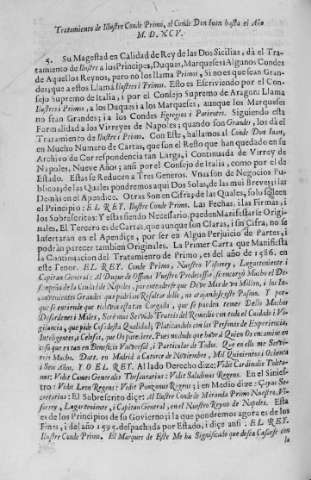 Tratamiento de Illustre Conde Primo, al Conde Don Iuan hasta el Año
M. D. XCV.
5. Su Magestad en Calidad de Rey de las Dos Sicilias, dá el Tra-
tamiento de Ilustre a los Principes, Duques, Marqueses i Algunos Condes
de Aquellos Reynos, pero no los llama Primos, Si no es que sean Gran-
des; que a estos Llama Ilustres i Primos. Esto es Escriviendo por el Con-
sejo Supremo de Italia, i por el Consejo Supremo de Aragon: Llama
Ilustres i Primos a los Duques i a los Marqueses, aunque los Marqueses
no sean Grandes; i a los Condes Egregios i Parientes. Siguiendo esta
Formalidad a los Virreyes de Napoles; quando son Grandes, los dá el
Tratamiento de Ilustre i Primo. Con Este, hablamos al Conde Don Iuan,
en Mucho Numero de Cartas, que son el Resto que han quedado en su
Archivo de Correspondencia tan Larga, i Continuada, de Virrey de
Napoles, Nueve Años; ansi por el Consejo de Italia, como por el de
Estado. Estas se Reducen a Tres Generos. Unas son de Negocios Pu-
blicos; de las Quales pondremos aqui Dos Solas, de las mas Breves; i las
Demás en el Apendice. Otras Son en Cifra; de las Quales, solo
el Principio: EL REY. Ilustre Conde Primo. Las Fechas, i las Firmas, i
los Sobrescritos: Y estas siendo Necessario, pueden Manifestarse Origi-
nales. El Tercero es de Cartas, que aunque son Claras, i sin Cifra, no se
Insertaran en el Apendice, por ser en Algun Perjuicio de Partes; i
podrán parecer tambien Originales. La Primer Carta que Manifiesta
la Continuacion del Tratamiento de Primo, es del año de 1586. en
este Tenor. EL REY. Conde Primo, Nuestro Visorrey, Lugarteniente i
Capitan General: Al Duque de Ossuna Vuestro Predecessor, se encargò Mucho el Des-
empeño de la Ciudad de Napoles, por entenderse que Deve Mas de un Millon, i los In-
convenientes Grandes que podrian Resultar dello, no atajandose este Passo. Y por-
que se entiende que todavia esperan Correr, i se pueden temer Dello Muchas
Desordenes i Males, Será mui Servido Trateis del Remedio con todo el Cuidado i Vi-
gilancia, que pide Cosa desta Qualidad; Platicandolo con las Personas de Esperiencia,
Inteligentes, a Celosas, que Os pareciere. Pues no dudo que havrá Quien Os encamine en
lo que es tan en Beneficio Universal, i Particular de Todos. Que en ello me Servi-
reis Mucho. Dat. en Madrid a Catorce de Noviembre, Mil Quinientos i Ochenta
i Seis Años, YO EL REY. Al lado Derecho dize; Vidit Cardinalis Toleta-
nus: Vidit Comes Generalis Thesaurarius: Vidit Salodinus Regens. En el Sinies-
tro: Vidit Leon Regens: Vidit Ponzonus Regens; i en Medio dize: Çayas Se-
cretarius: El Sobrescrito dize: Al Ilustre Conde de Miranda Primo Nuestro, Vi-
sorrey, Lugarteniente, i Capitan General, en el Nuestro Reyno de Napoles. Esta
es de los Principios de su Govierno; i la que pondremos agora es de los
Fines, i del año 1595. despachada por Estado, i dize ansi: EL REY.
Ilustre Conde Primo, El Marques de Este Me ha Significado que desea Casarse con
la